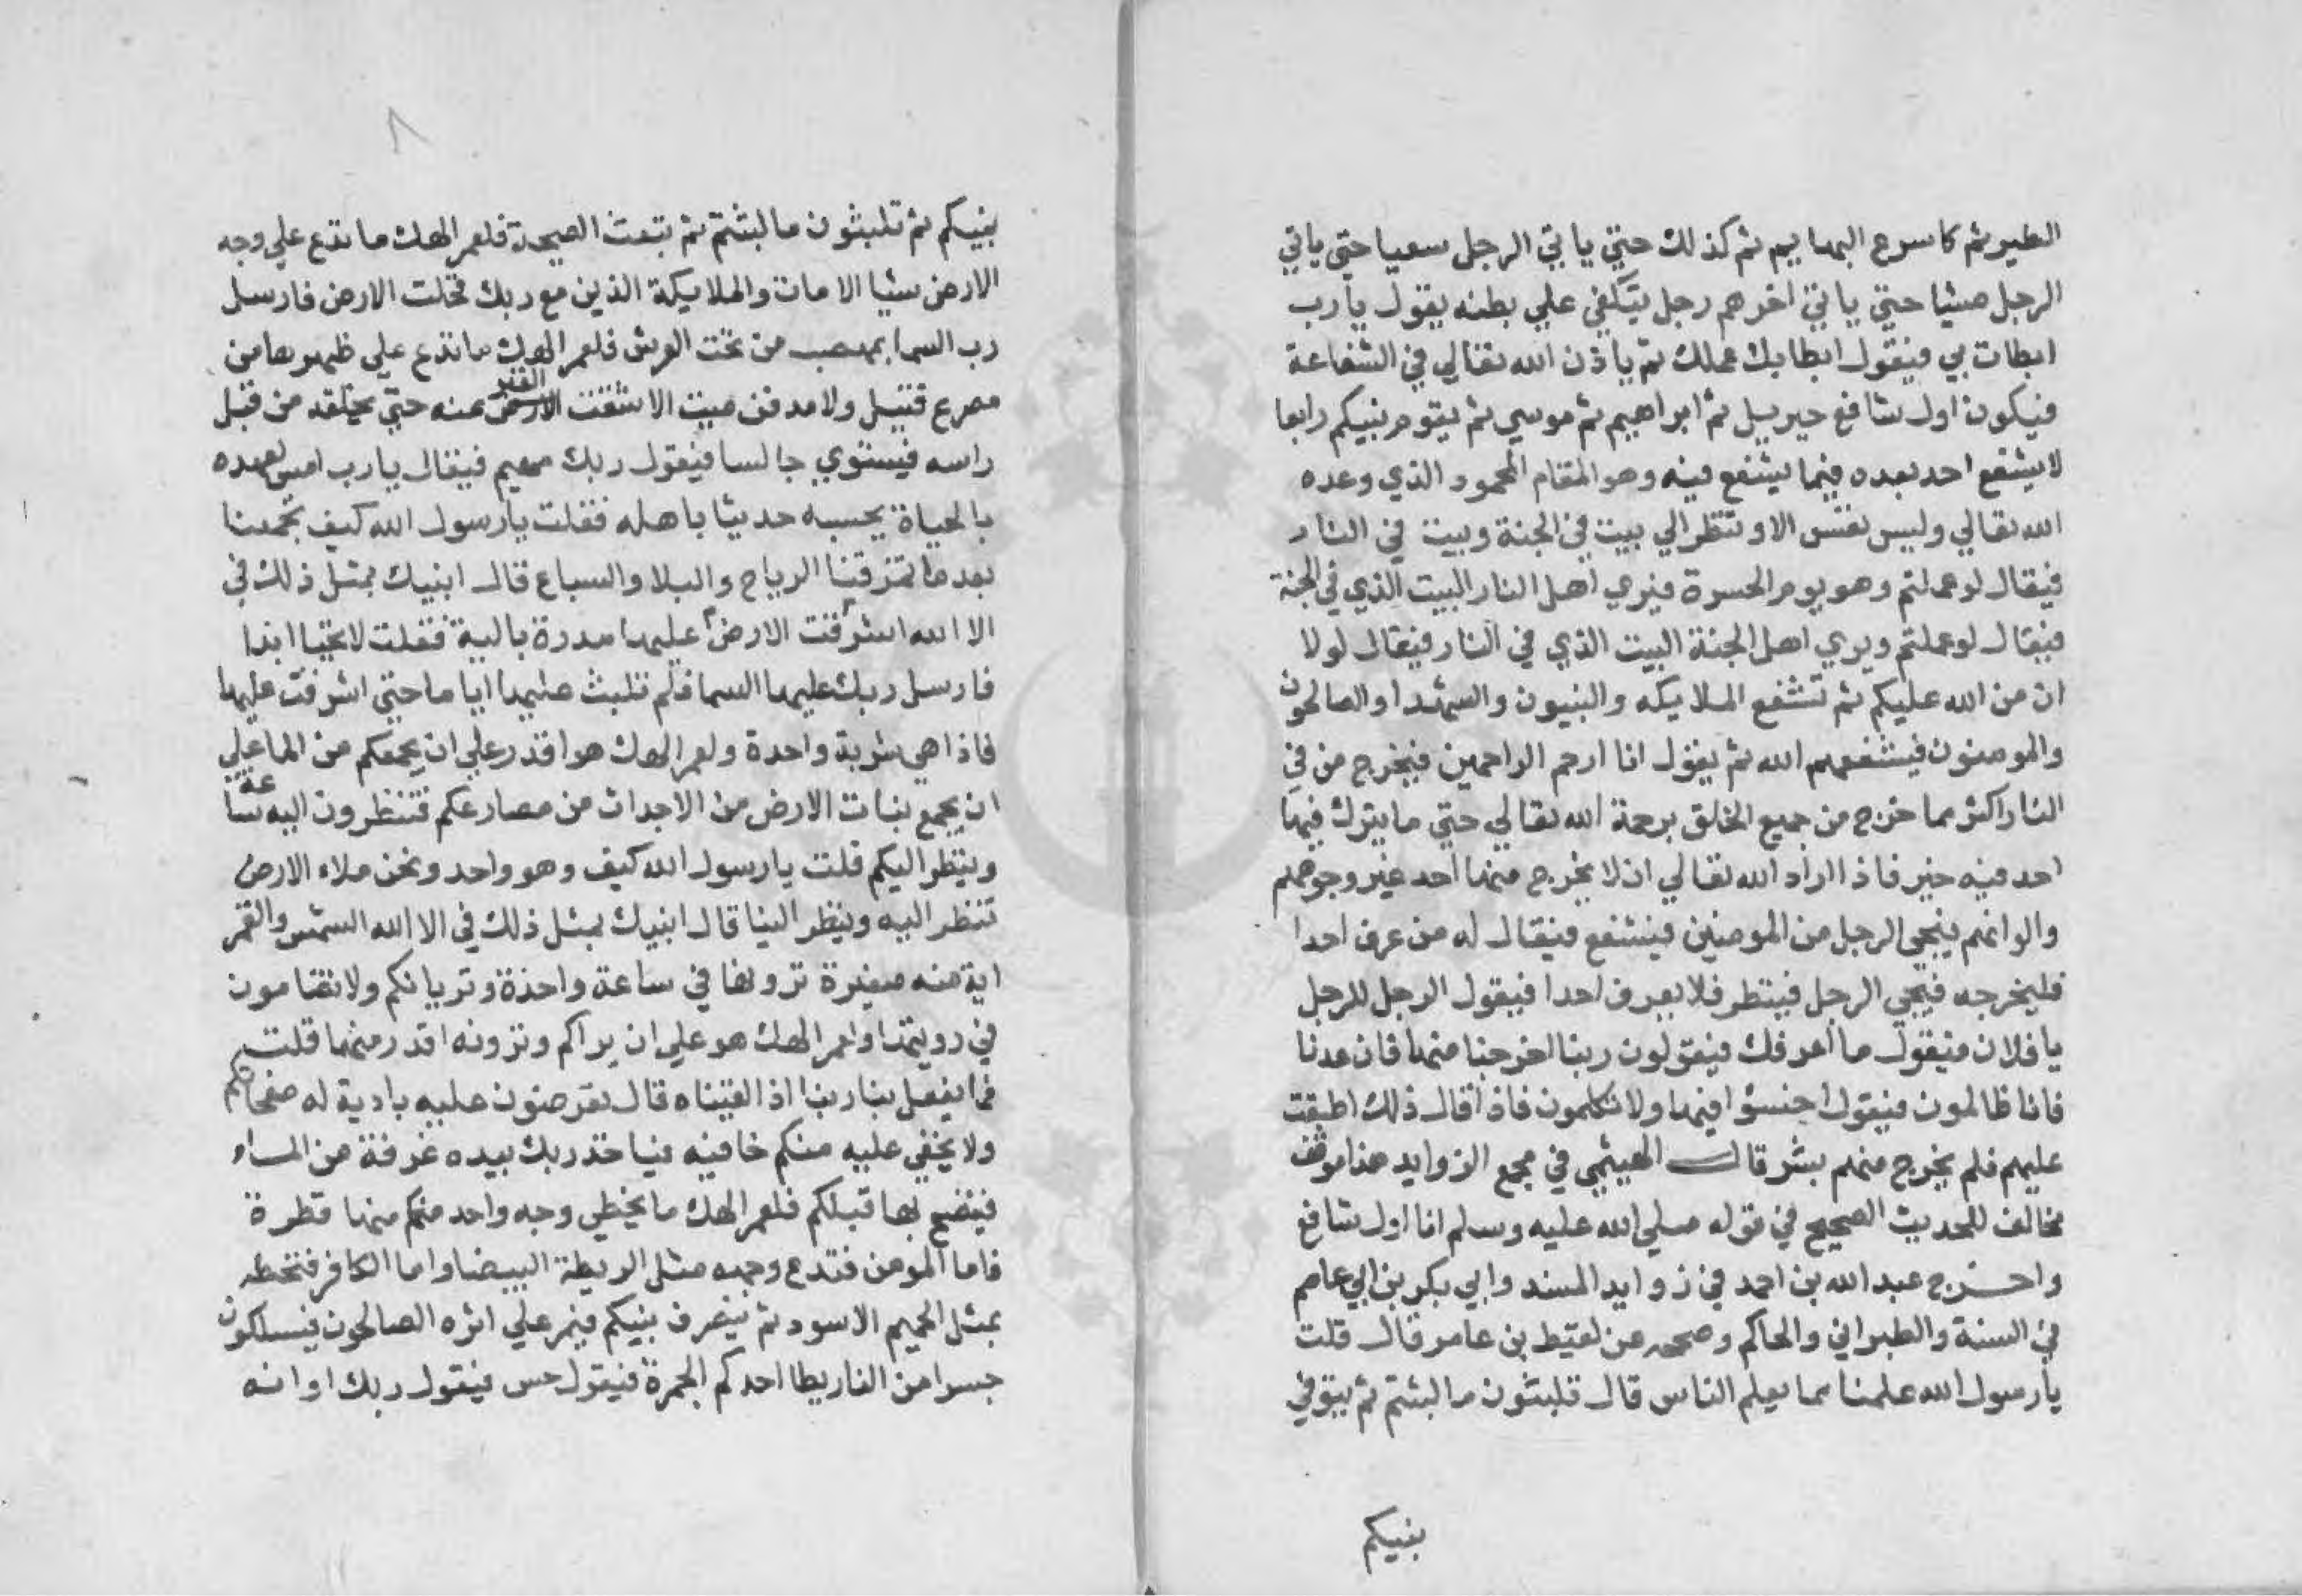 الطير ثم كاسرع البهايم ثم كذلك حتي ياتي الرجل سعيا حتي ياتي
الرجل مشيا حتي ياتي اخرهم رجل يتكفي علي بطنه يقول يارب
ابطات بي فيقول ابطا بك عملك ثم ياذن الله تعالي في الشفاعة
فيكون اول شافع جبريل ثم ابراهيم ثم موسي ثم يقوم نبيكم رابعا
لا يشفع احد بعده فيما يشفع فيه وهو المقام المحمود الذي وعده
الله تعالي وليس نفس الا وتنظر الي بيت في الجنة وبيت في النار
فيقال لو عملتم وهو يوم الحسرة فيري اهل النار البيت الذي في الجنة
فيقال لو عملتم ويري اهل الجنة البيت الذي في النار فيقال لولا
ان من الله عليكم ثم تشفع الملايكه والنبيون والشهدا والصالحون
والمومنون فيشفعهم الله ثم يقول انا ارحم الراحمين فيخرج من في
النار اكثر مما خرج من جميع الخلق برحمة الله تعالي حتي ما يترك فيها
احد فيه خير فاذا اراد الله تعالي ان لا يخرج منها احد غير وجوههم
والوانهم فيجي الرجل من المومنين فيشفع فيقال له من عرف احدا
فليخرجه فيجي الرجل فينظر فلا يعرف احدا فيقول الرجل للرجل
يا فلان فيقول ما اعرفك فيقولون ربنا اخرجنا منها فان عدنا
فانا ظالمون فيقول اخسؤا فيها ولا تكلمون فاذا قال ذلك اطبقت
عليهم فلم يخرج منهم بشر قال الهيثمي في مجمع الزوايد هذا موقوف
مخالف للحديث الصحيح في قوله صلي الله عليه وسلم انا اول شافع
واخرج عبد الله بن احمد في زوايد المسند وابي بكر بن ابي عاصم
في السنة والطبراني والحاكم وصححه عن لقيط بن عامر قال قلت
يا رسول الله علمنا مما يعلم الناس قال تلبثون ما لبثتم ثم يتوفي
نبيكم
٨
نبيكم ثم تلبثون ما لبثتم ثم تبعث الصيحة فلعمر الهك ما تدع علي وجه
الارض شيا الا مات والملايكة الذين مع ربك فخلت الارض فارسل
رب السما بهضب من تحت العرش فلعمر الهك ما تدع علي ظهرها من
مصرع قتيل ولا مدفن ميت الا شقت الارض القبر عنه حتي يخلقه من قبل
راسه فيستوي جالسا فيقول ربك مهيم فيقال يارب امس لعهده
بالحياة يحسبه حديثا باهله فقلت يا رسول الله كيف يجمعنا
بعد ما تمزقنا الرياح والبلا والسباع قال انبيك بمثل ذلك في
الا الله اشرفت الارض عليها مدرة بالية فقلت لا تحيا ابدا
فارسل ربك عليها السما فلم تلبث عليها اياما حتي اشرفت عليها
فاذا هي شربة واحدة ولعمر الهك هو اقدر علي ان يجمعكم من الما علي
ان يجمع نبات الارض من الاجداث من مصارعكم فتنظرون اليه ساعة
وينظر اليكم قلت يا رسول الله كيف وهو واحد ونحن ملاء الارض
تنظر اليه وينظر الينا قال انبيك بمثل ذلك في الا الله الشمس والقمر
اية منه صغيرة ترونها في ساعة واحدة وتريانكم ولا تضامون
في رويتهما ولعمر الهك هو علي ان يراكم وترونه اقدر منهما قلت
فما يفعل بنا ربنا اذا لقيناه قال تعرضون عليه بادية له صفحاتكم
ولا يخفي عليه منكم خافيه فياخذ ربك بيده غرفة من الماء
فينضح بها قبلكم فلعمر الهك ما يخطي وجه واحد منكم منها قطرة
فاما المومن فتدع وجهه مثل الريطة البيضا واما الكافر فتخطه
بمثل الحميم الاسود ثم ينصرف نبيكم فيمر علي اثره الصالحون فيسلكون
جسرا من النار يطا احدكم الجمرة فيقول حس فيقول ربك او انه